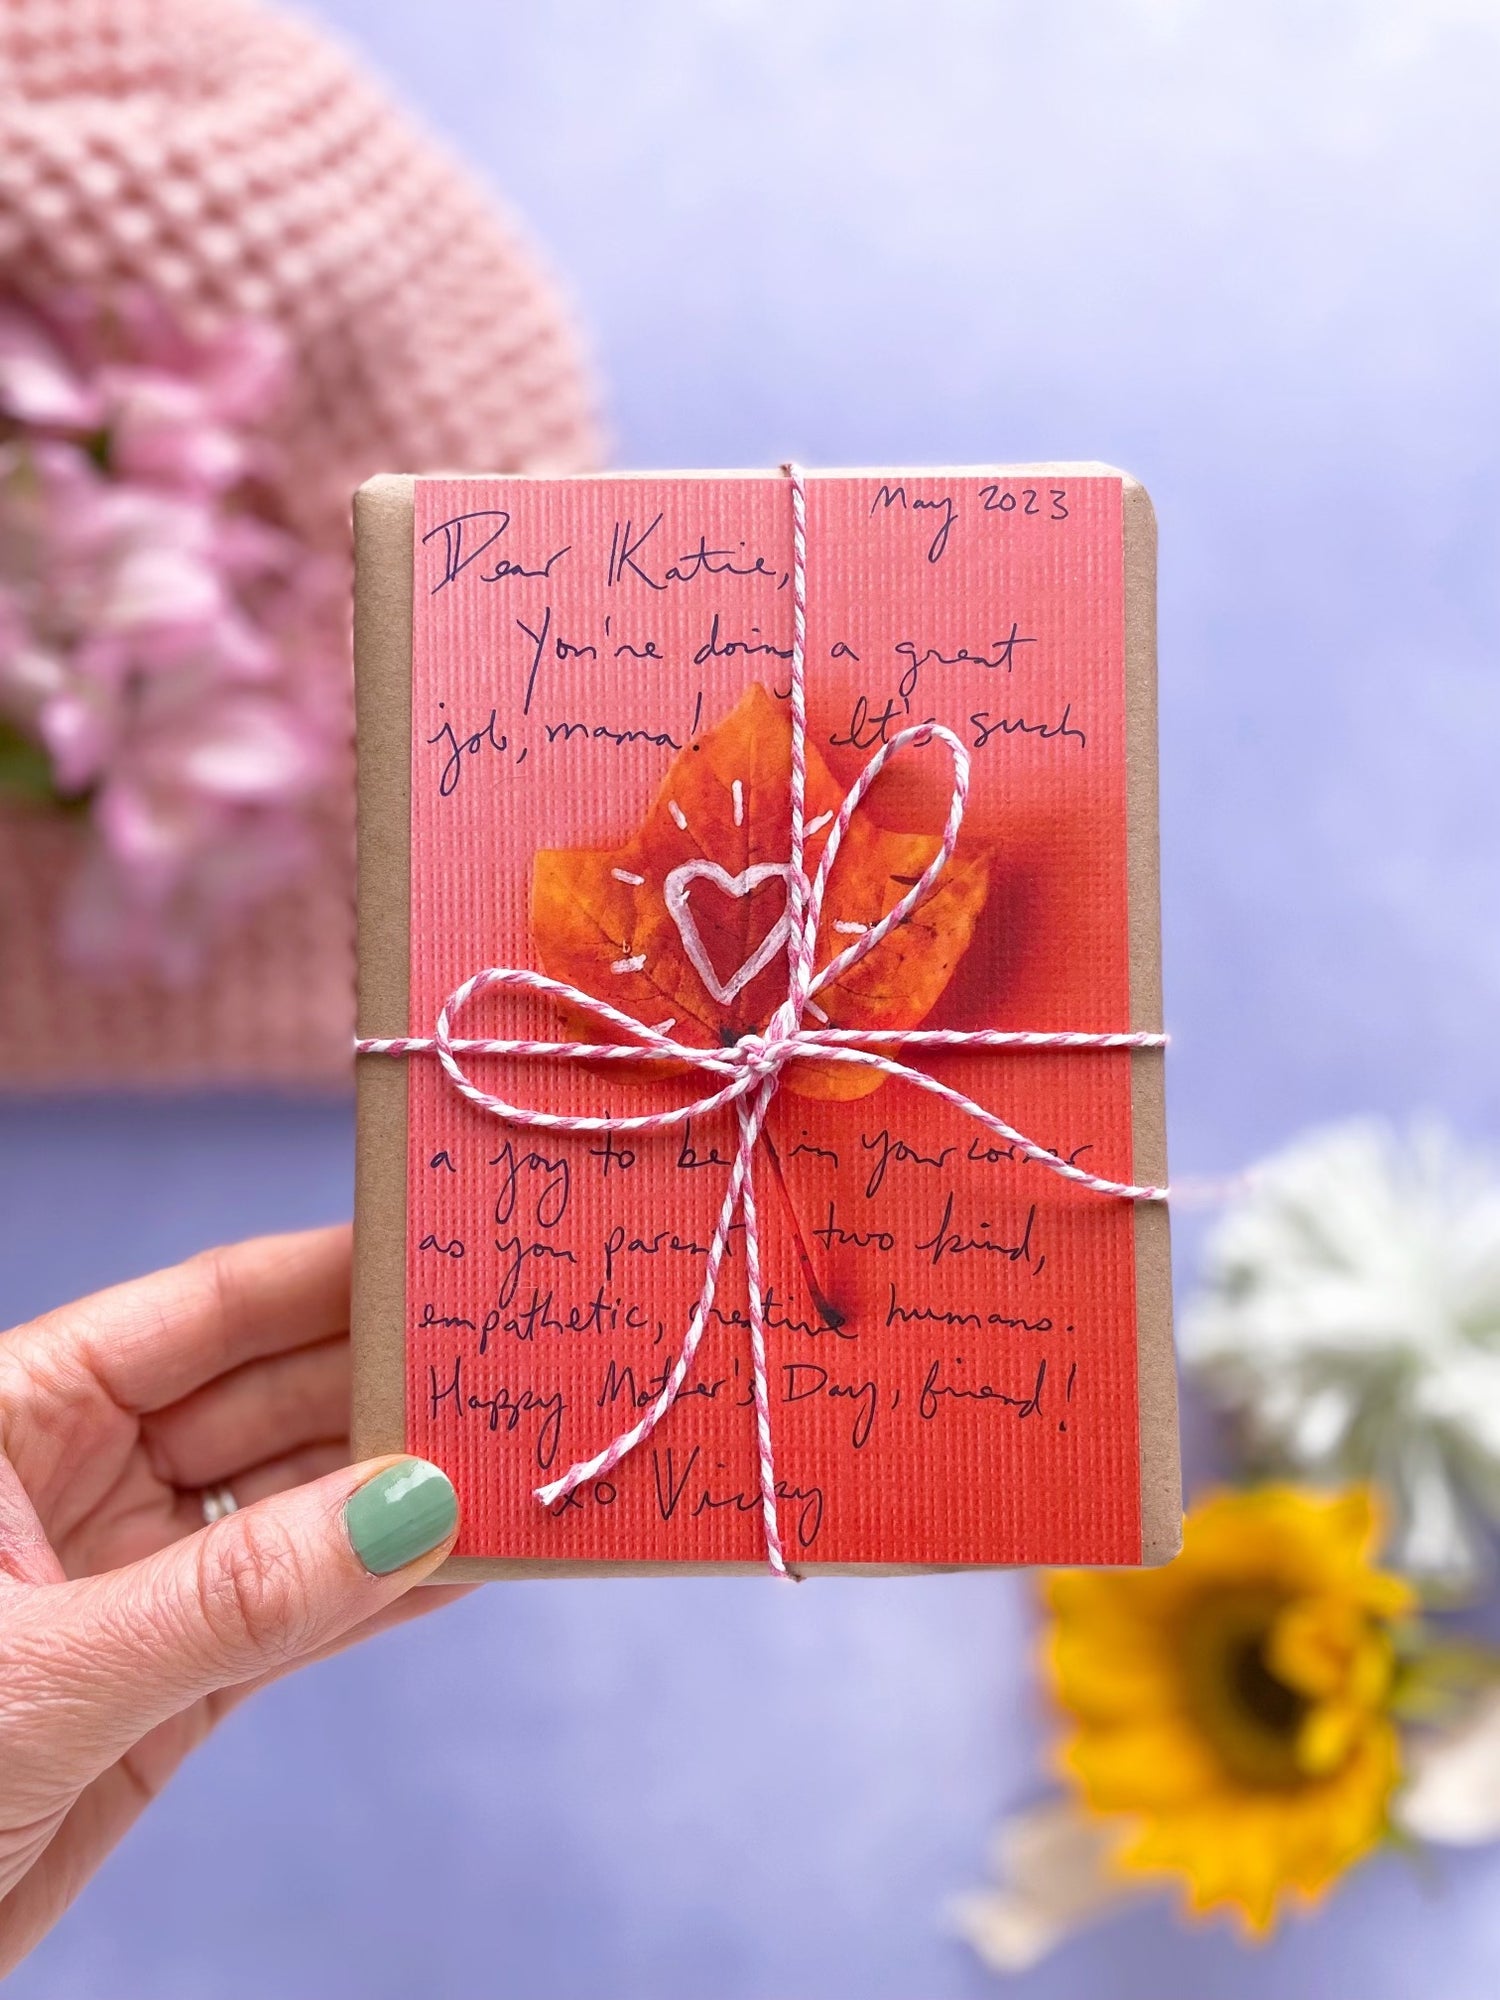 May 2023
Dear Katie,
You're doing a great
job, mama! It's such
a joy to be in your corner
as you parent two kind,
empathetic, creative humans.
Happy Mother's Day, friend!
xo Vicky